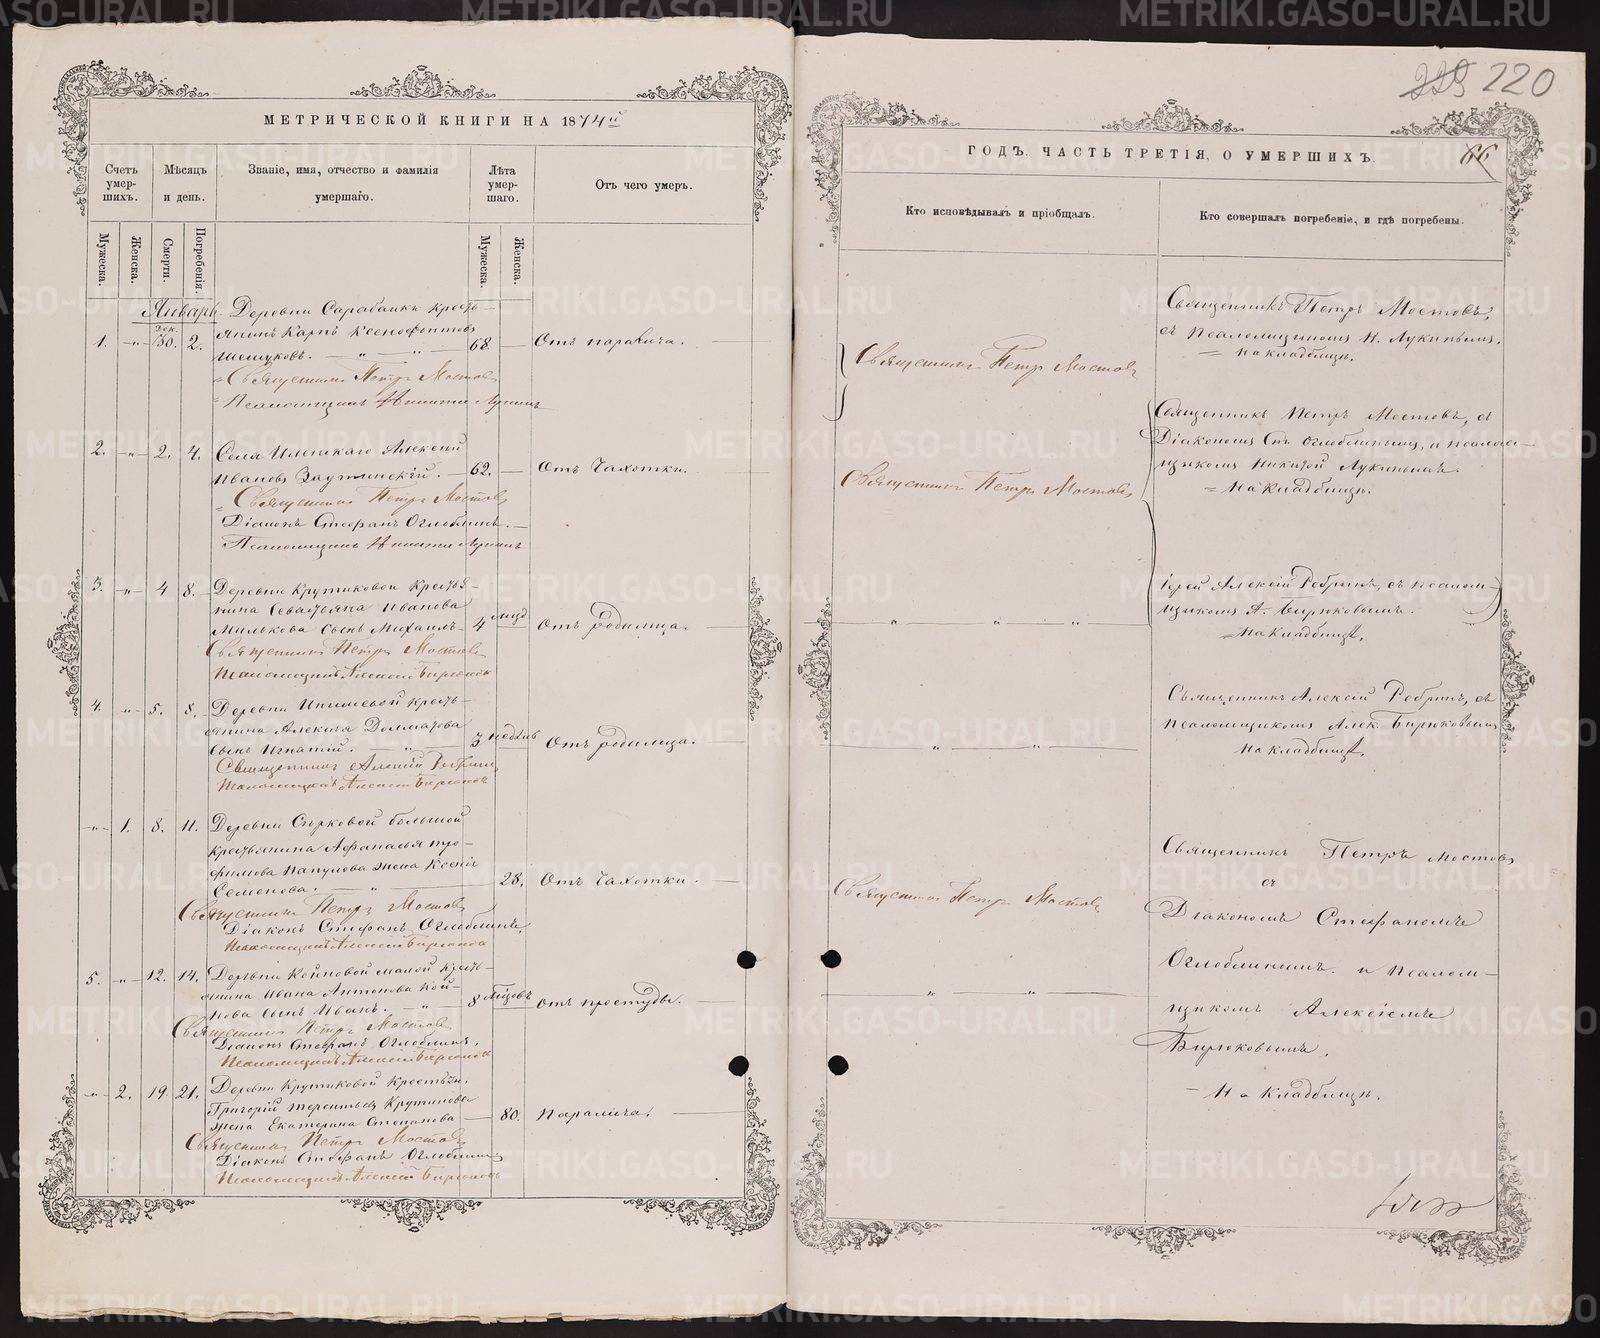 МЕТРИЧЕСКОЙ КНИГИ НА 1874й
Счетъ умер-шихъ.
Мѣсяцъ и день.
Званіе, имя, отчество и фамилія умершаго.
Лѣта умер-шаго.
Отъ чего умеръ.
Мужеска.
Женска.
Смерти.
Погребенія.
Мужеска.
Женска.
Январь.
Деревни Сарабаикъ кресть-
1. -„- Дек. 30. 2. янинъ Карпъ Ксенофонтовъ 68. — Отъ паралича.
Шешуковъ.
Священникъ Петръ Мостовъ
Псаломщикъ Никита Лукинъ
2. -„- 2. 4. Села Алексѣй
Ивановъ 62. — Отъ Чахотки.
Священникъ Петръ Мостовъ
Діаконъ Стефанъ Оглоблинъ.
Псаломщикъ Никита Лукинъ
3. -„- 4 8. Деревни Крутиковой Крестья-
нина Севастьяна Иванова
Милькова Сынъ Михаилъ 4 Отъ родимца.
Священникъ Петръ Мостовъ
Псаломщикъ Алексѣй Бирюковъ
4. -„- 5. 8. Деревни кресть-
янина Алексѣя Долматова
Сынъ Игнатій. 3 недѣль Отъ родимца.
Священникъ Алексій
Псаломщикъ Алексѣй Бирюковъ
-„- 1. 8. 11. Деревни Сѣрковой большой
Крестьянина Афанасья Тро-
фимова Папулова жена Ксенія
Семенова. 28. Отъ Чахотки.
Священникъ Петръ Мостовъ
Діаконъ Стефанъ Оглоблинъ,
Псаломщикъ Алексѣй Бирюковъ
5. -„- 12. 14. Деревни Койновой малой кресть-
янина Ивана Антонова Кой-
нова Сынъ Иванъ. 8 отъ простуды.
Священникъ Петръ Мостовъ
Діаконъ Стефанъ Оглоблинъ.
Псаломщикъ Алексѣй Бирюковъ
-„- 2. 19. 21. Деревни Крутиковой Крестьян.
Григорій Терентьева Крутикова
жена Екатерина Степанова 80. Паралича.
Священникъ Петръ Мостовъ
Діаконъ Стефанъ Оглоблинъ
Псаломщикъ Алексѣй Бирюковъ
220
ГОДЪ, ЧАСТЬ ТРЕТІЯ, О УМЕРШИХЪ.
66
Кто исповѣдывалъ и пріобщалъ.
Кто совершалъ погребеніе, и гдѣ погребены.
Священникъ Петръ Мостовъ
Священникъ Петръ Мостовъ,
съ псаломщикомъ Н. Лукинымъ.
на кладбищѣ.
Священникъ Петръ Мостовъ
Священникъ Петръ Мостовъ, съ
Діакономъ Ст. Оглоблинымъ, и псалом-
щикомъ Никитой Лукинымъ.
На кладбищѣ.
Іерей Алексій съ псалом-
щикомъ А. Бирюковымъ.
На кладбищѣ.
Священникъ Алексій съ
псаломщикомъ Алек. Бирюковымъ
на кладбищѣ
Священникъ Петръ Мостовъ
Священникъ Петръ Мостовъ
съ
Діакономъ Стефаномъ
Оглоблинымъ. и псалом-
щикомъ Алексіемъ
Бирюковымъ.
На кладбищѣ.
METRIKI.GASO-URAL.RU